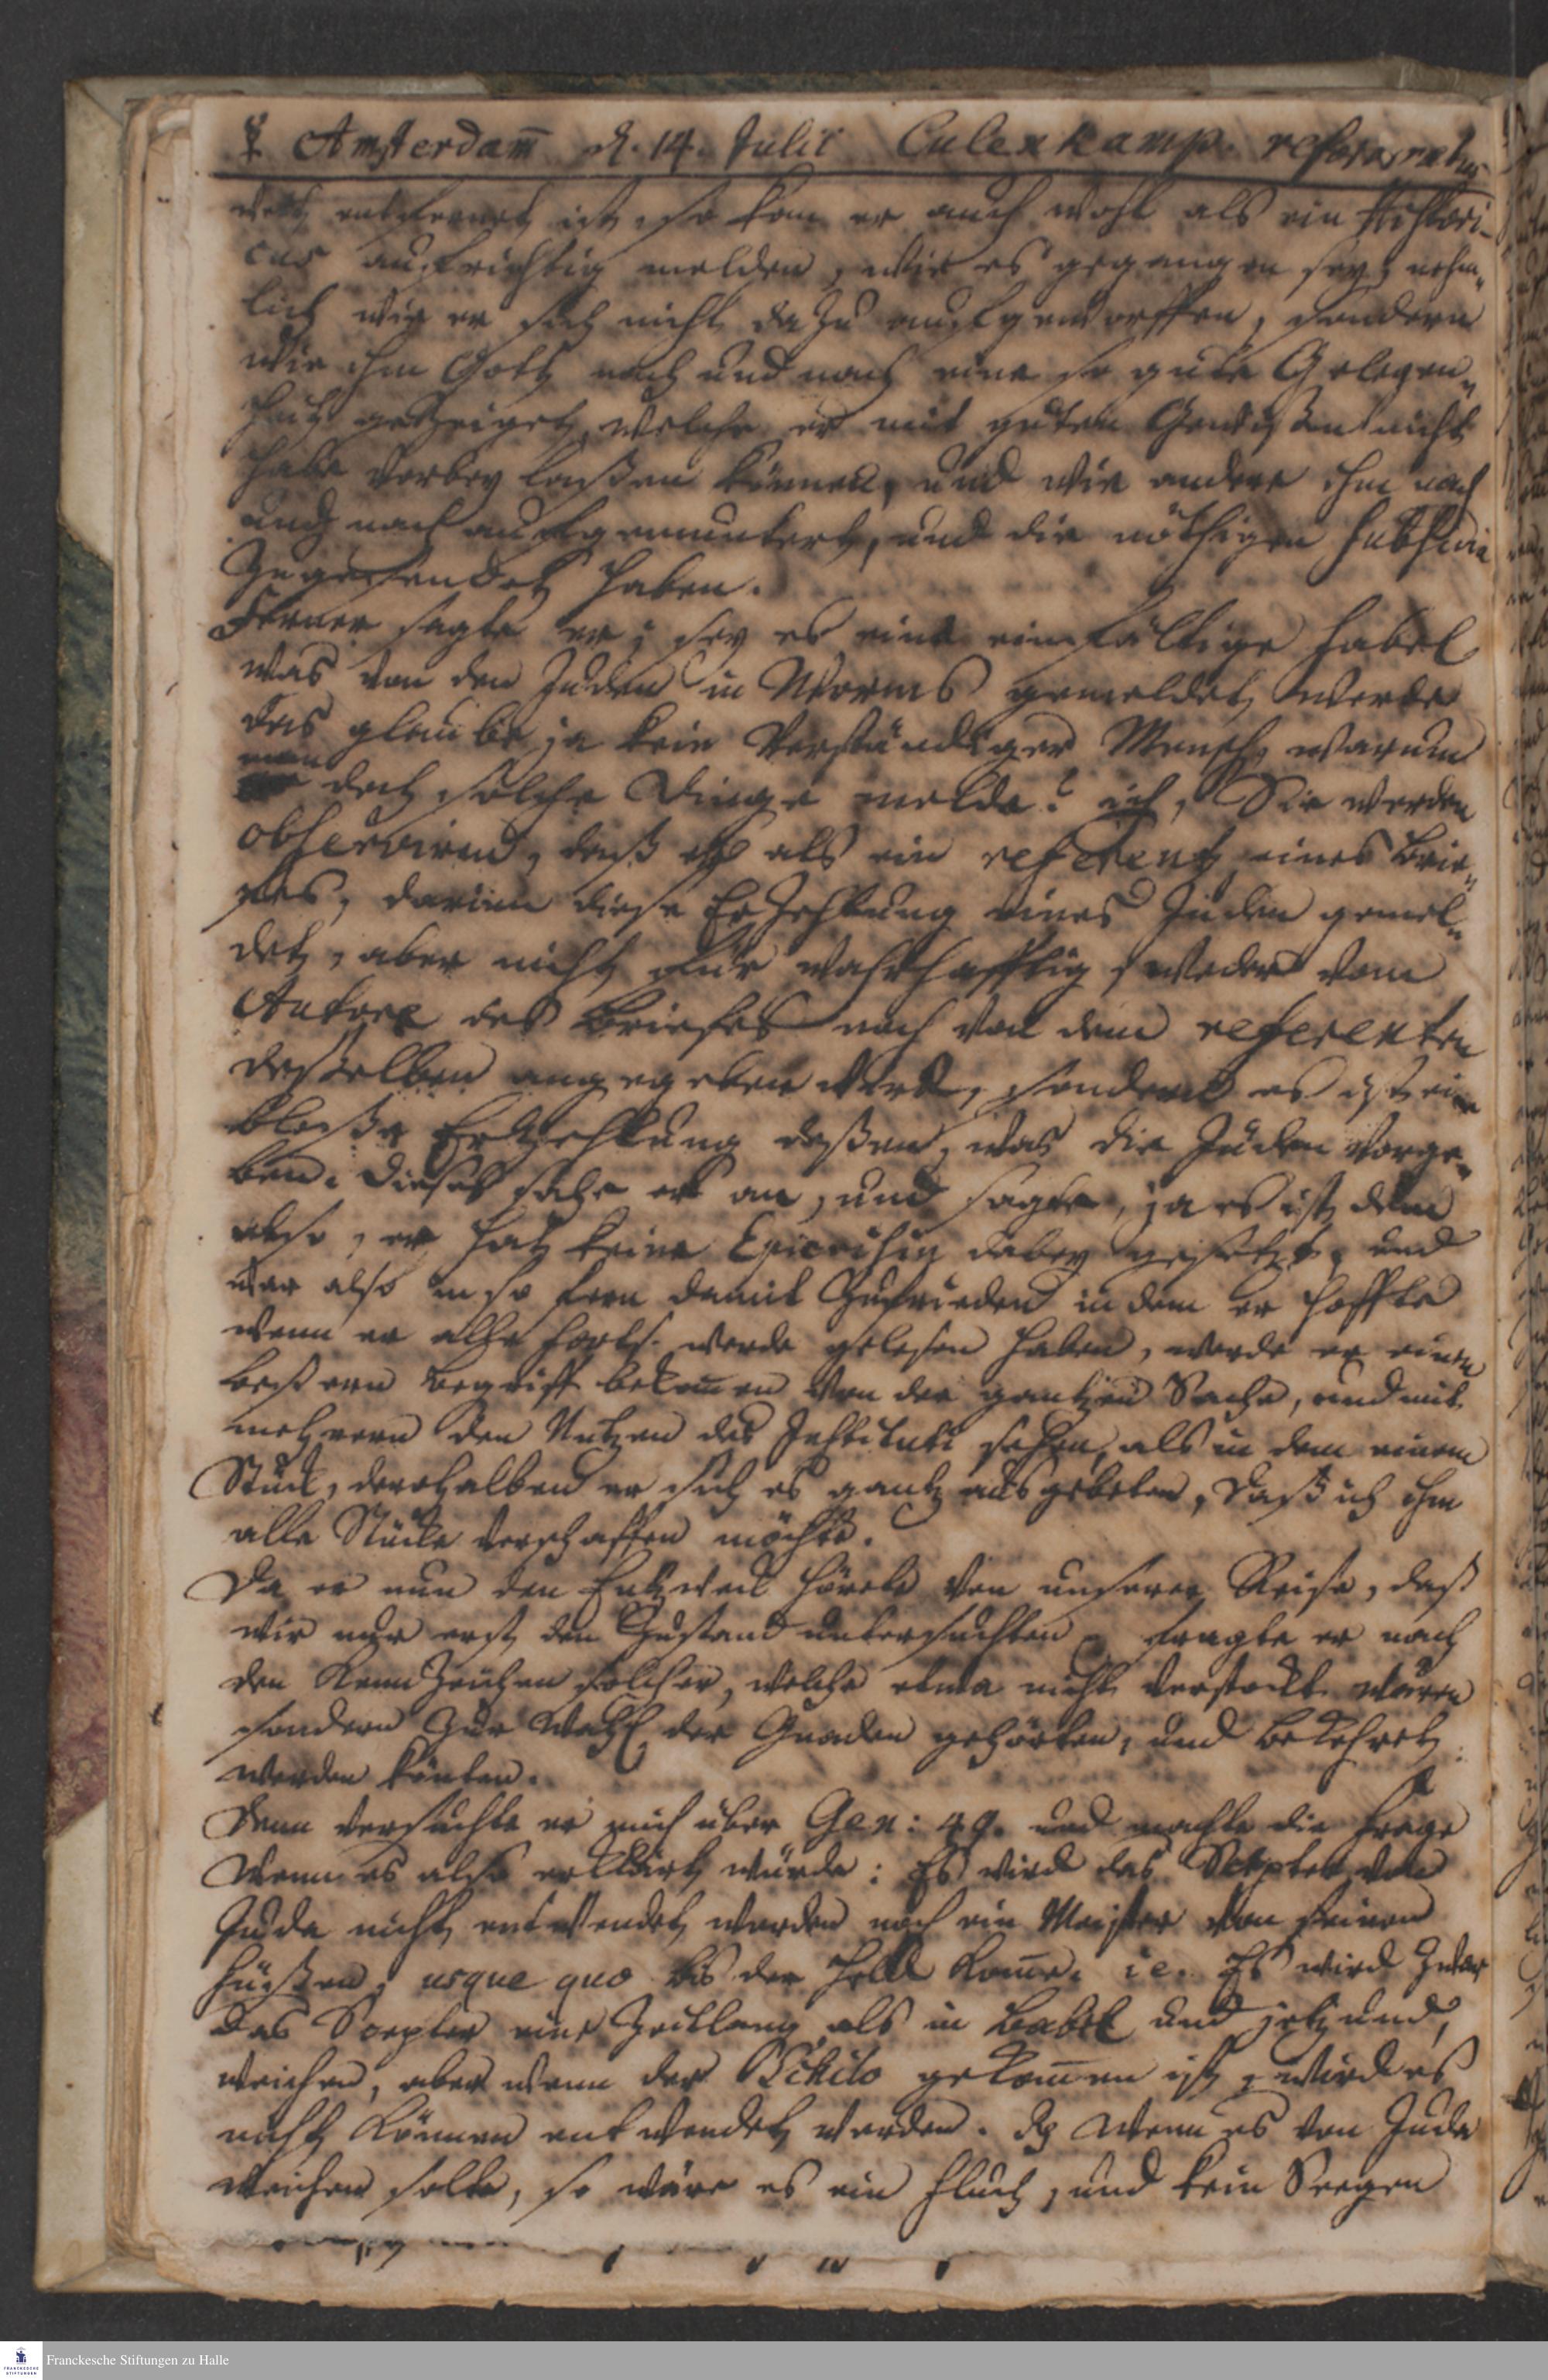 ☿ Amsterdam̅ d. 14. Julii Culenkamp. reformatus
weit entfernet ist, so kan er auch wohl als ein Histori-
cus aufrichtig melden, wie es gegangen sey, nehm-
lich wie er sich nicht dazu aufgeworffen, sondern
wie ihm Gott nach und nach eine so gute Gelegen-
heit gezeiget, welche er mit guten Gewißen nicht
habe vorbey laßen können, und wie andere ihm nach
und nach aufgemuntert, und die nöthigen subsidia
zugesendet haben.
Ferner sagte er; sey es eine einfältige Fabel
was von den Juden in Worms gemeldet werde
das glaube ja kein verständiger Mensch, warum
man doch solche Dinge melde? ich, Sie werden
observiren, daß als ein referent eines Brie-
fes, darinn diese Erzehlung eines Juden gemel-
det, aber nicht für wahrhafftig, weder vom
Autore des Briefes noch von dem referenten
deßelben angegeben wird, sondern es ist eine
bloße Ertzehlung deßen, was die Juden vorge-
ben. Dieses sahe er an, und sagte, ja es ist dem
also, er hat keine Epicrisin dabey gesetzt, und
war also in so fern damit zufrieden in dem er hoffte
wenn er alle Forts. werde gelesen haben, werde er einen
beßern Begriff bekom̅en von der gantzen Sache, und mit
mehrern den Nutzen des Instituti sehen, als in dem einem
Stück, derohalben er sich es gantz ausgebeten, daß ich ihm
alle Stücke verschaffen möchte.
Da er nun den Entzweck hörete von unserer Reise, daß
wir nur erst den Zustand untersuchten fragte er nach
den Kennzeichen solcher, welche etwa nicht verstockt wären
sondern zur Wahl der Gnaden gehörten, und bekehret
werden könten.
Denn versuchte er mich über Gen: 49. und machte die Frage
Wenn es also erklärt würde: Es wird das Scepter von
Juda nicht entwendet werden noch ein Meister von seinen
Füßen, usque quo bis der Held kom̅e. i.e. Es wird zwar
das Scepter eine Zeitlang, als in Babel und jetzund,
weichen, aber wenn der Schilo gekom̅en ist, wird es
nicht können entwendet werden. Denn wenn es von Juda
weichen solte, so wäre es ein Fluch, und kein Seegen
Franckesche Stiftungen zu Halle